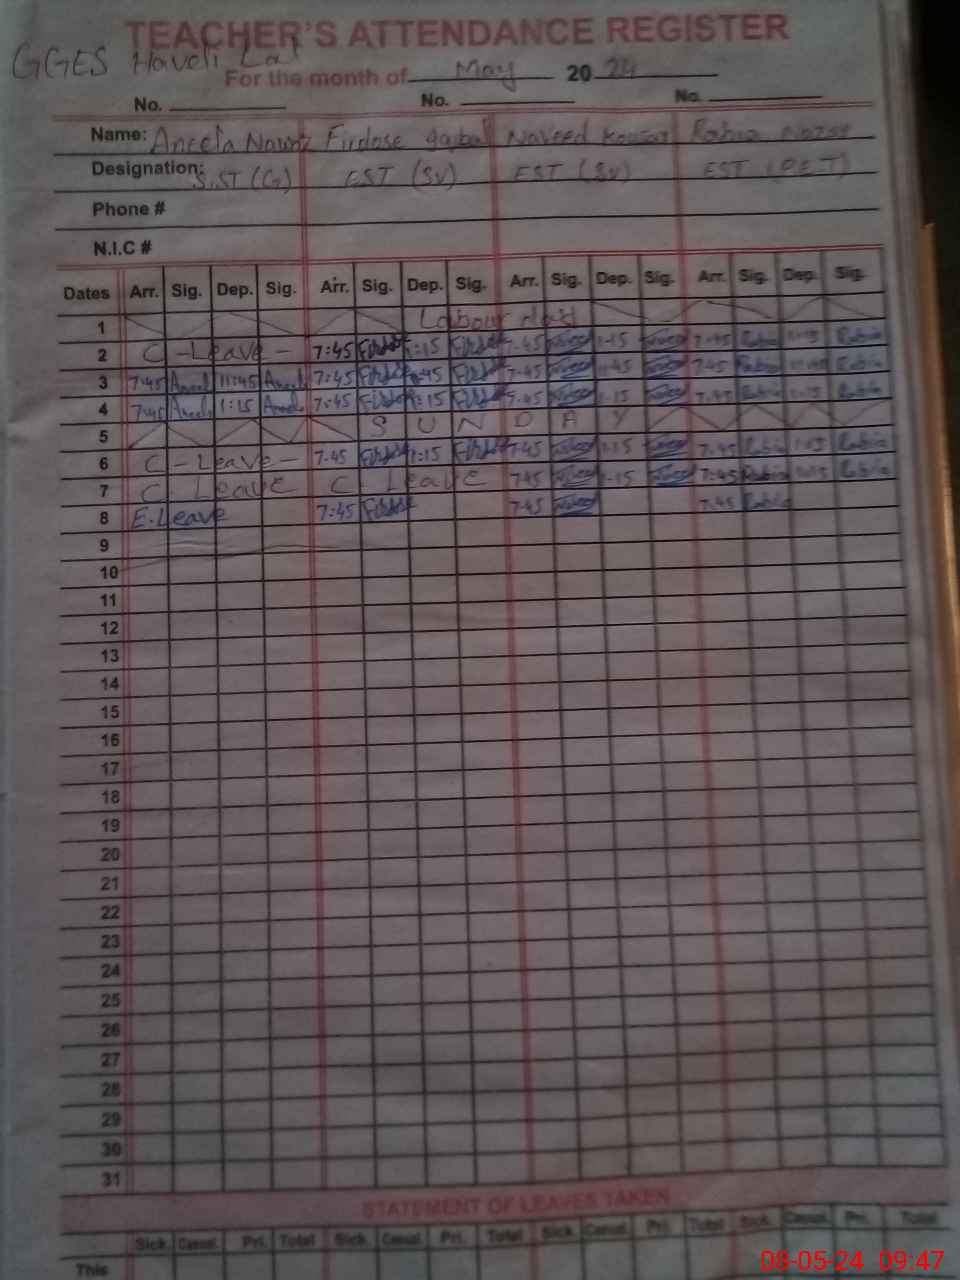 TEACHER'S ATTENDANCE REGISTER
GGES Haveli Lal
For the month of May 20 24
No. No. No.
Name: Aneela Nawaz Firdose Naveed Kousar Rabia
Designation: S.ST (G) EST (SV) EST (SV) EST (P.E.T)
Phone #
N.I.C #
Dates Arr. Sig. Dep. Sig. Arr. Sig. Dep. Sig. Arr. Sig. Dep. Sig. Arr. Sig. Dep. Sig.
1 Labour day
2 C - Leave - 7:45 Firdose 1:15 Firdose 7:45 1:15 7:45 Rabia 1:15 Rabia
3 7:45 Aneela 11:45 Aneela 7:45 Firdose 11:45 Firdose 7:45 11:45 7:45 Rabia 11:45 Rabia
4 7:45 Aneela 1:15 Aneela 7:45 Firdose 1:15 Firdose 7:45 1:15 7:45 Rabia 1:15 Rabia
5 S U N D A Y
6 C - Leave - 7:45 Firdose 1:15 Firdose 7:45 1:15 7:45 Rabia 1:15 Rabia
7 C. Leave C. Leave 7:45 1:15 7:45 Rabia 1:15 Rabia
8 E.Leave 7:45 Firdose 7:45 7:45 Rabia
9
10
11
12
13
14
15
16
17
18
19
20
21
22
23
24
25
26
27
28
29
30
31
STATEMENT OF LEAVES TAKEN
Sick Casual Pri. Total Sick Casual Pri. Total Sick Casual Pri. Total Sick Casual Pri. Total
This
08-05-24 09:47